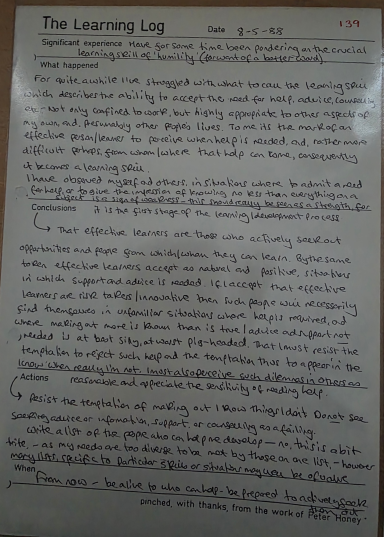 139
The Learning Log
Date 8-5-88
Significant experience Have for some time been pondering on the crucial
learning skill of 'humility' (for want of a better word)
What happened
For quite a while I've struggled with what to call the learning skill
which describes the ability to accept the need for help, advice, counselling
etc - Not only confined to work, but highly appropriate to other aspects of
my own and, presumably other people's lives. To me its the mark of an
effective person/learner to perceive when help is needed and, rather more
difficult perhaps, from whom/where that help can come, consequently
it becomes a learning skill.
I have observed myself and others, in situations where to admit a need
for help, or to give the impression of knowing no less than everything on a
subject is a sign of weakness - this should really be seen as a strength, for
Conclusions it is the first stage of the learning/development process
→ That effective learners are those who actively seek out
opportunities and people from which/whom they can learn. By the same
token effective learners accept as natural and positive, situations
in which support and advice is needed. If I accept that effective
learners are risk takers/innovative then such people will necessarily
find themselves in unfamiliar situations where help is required, and
where making out more is known than is true/advice and support not
needed is at best silly, at worst pig-headed. That I must resist the
temptation to reject such help and the temptation thus to appear in the
know when really I'm not. I must also perceive such dilemmas in others as
Actions reasonable and appreciate the sensitivity of needing help.
→ Resist the temptation of making out I know things I don't. Do not see
seeking advice or information, support, or counselling as a failing.
Write a list of the people who can help me develop - no, this is a bit
trite, - as my needs are too diverse to be met by those on one list, - however
many lists, specific to particular skills or situations may well be of value
When
→ From now - be alive to who can help - be prepared to actively seek
them out
pinched, with thanks, from the work of Peter Honey.